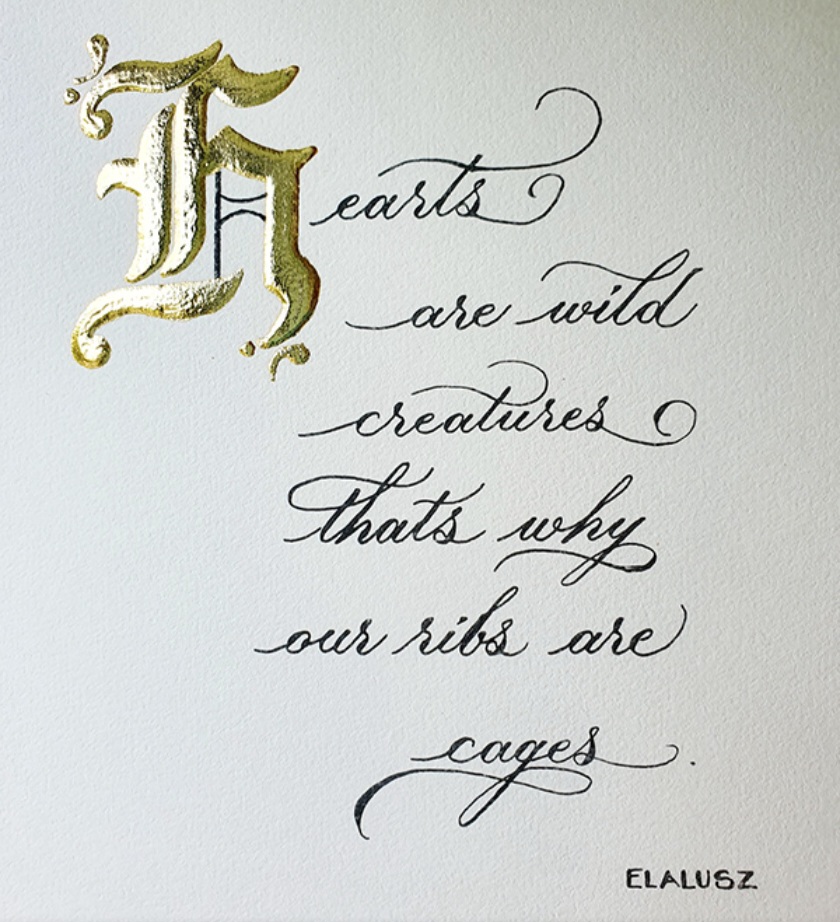 Hearts
are wild
creatures
thats why
our ribs are
cages.
ELALUSZ